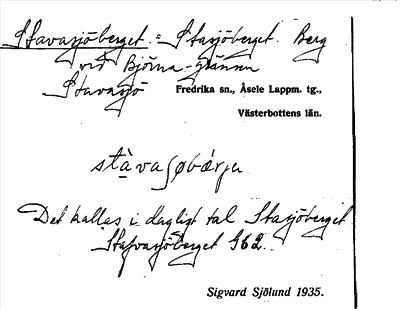 Stavasjöberget = Stasjöberget. Berg
vid Bjurna-gränsen
Stavasjö
Fredrika sn., Åsele Lappm. tg.,
Västerbottens län.
Det kallas i dagligt tal Stasjöberget
Stafvasjöberget G62.
Sigvard Sjölund 1935.